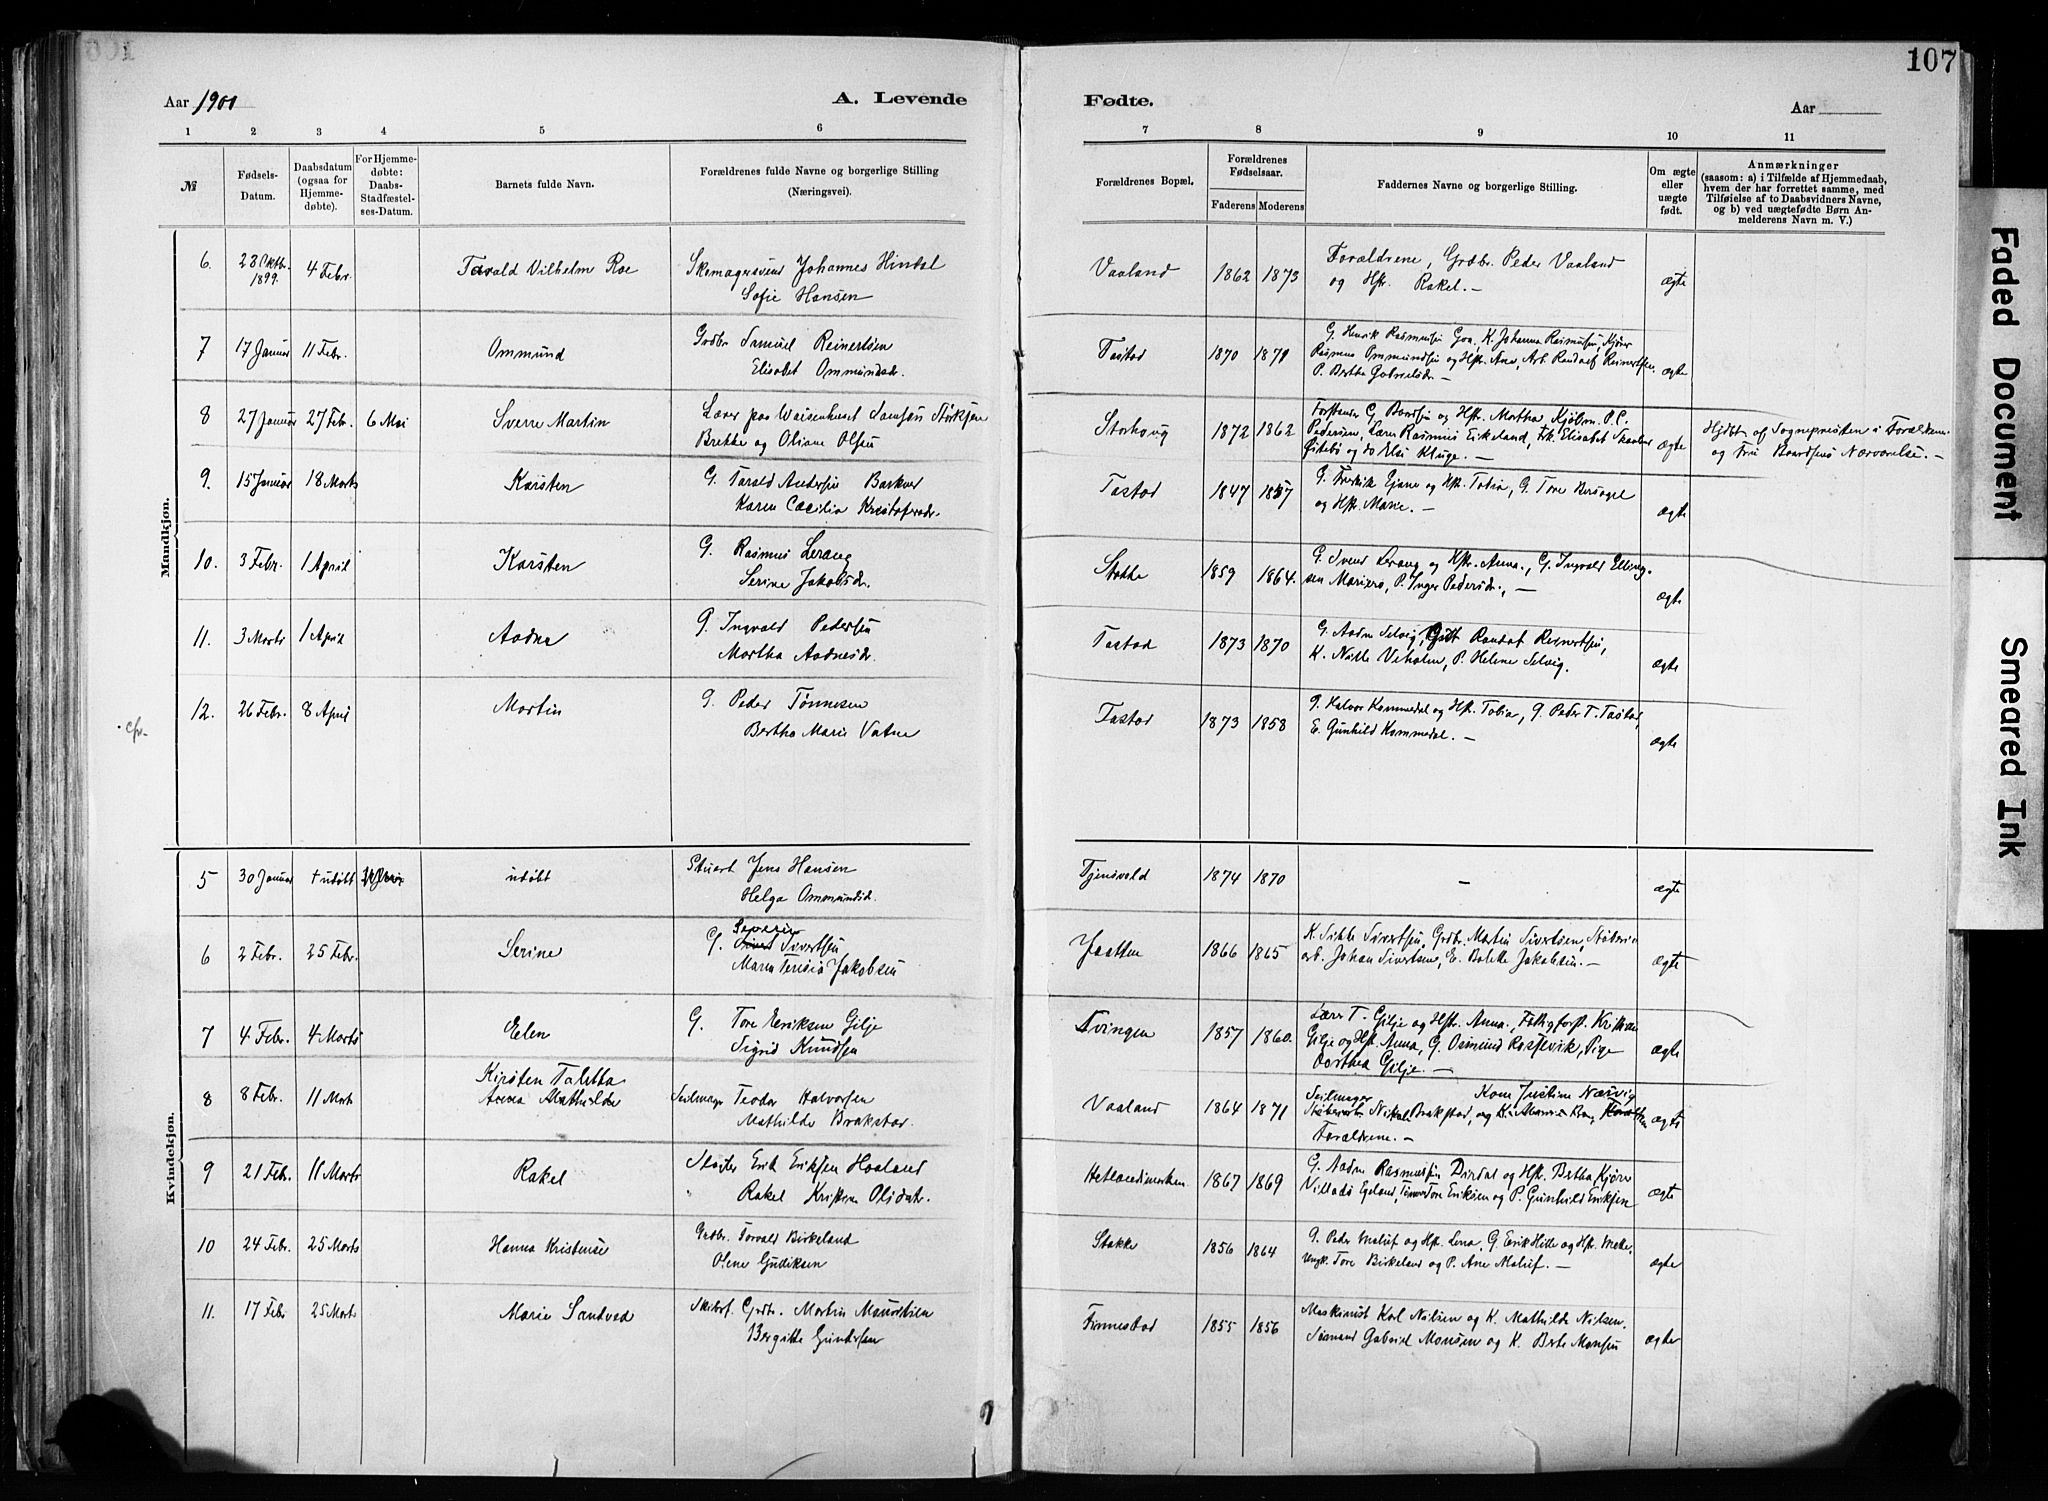 107
Aar 1900
A. Levende
Fødte.
Aar
1 2 3 4 5 6 7 8 9 10 11
№
Fødsels-
Datum.
Daabsdatum
(ogsaa for
Hjemme-
døbte).
For Hjemme-
døbte:
Daabs-
Stadfæstel-
ses-Datum.
Barnets fulde Navn.
Forældrenes fulde Navne og borgerlige Stilling
(Næringsvei).
Forældrenes Bopæl.
Forældrenes
Fødselsaar.
Faderens Moderens
Faddernes Navne og borgerlige Stilling.
Om ægte
eller
uægte
født.
Anmærkninger
(saasom: a) i Tilfælde af Hjemmedaab,
hvem der har forrettet samme, med
Tilføielse af to Daabsvidners Navne,
og b) ved uægtefødte Børn An-
melderens Navn m. V.)
Mandkjøn.
6. 23 Oktbr. 1899. 4 Febr. Tarald Vilhelm Roe
Skomagersvend Johannes Hinkel
Sofie Hansen
Vaaland 1862 1873
Forældrene, Grdbr. Peder Vaaland
og Hstr. Rakel. —
ægte
7 17 Januar 11 Febr. Ommund
Grdbr Samuel Reinertsen
Elisabet Ommundsdr.
Tastad 1870 1871
G. Henrik Rasmussen Goa, K. Johanna Rasmussen, Kjører
Rasmus Ommundsen og Hstr. Ane, Arb. Randolf Reinertsen
P. Bertha Gabrielsdr. —
ægte
8 27 Januar 27 Febr. 6 Mai Sverre Martin
Lærer paa Waisenhuset Samson Storkjen
Brekke og Oliane Olsen
Storhoug 1872 1862
Forstander G. Bordsen og Hstr. Martha, Kjøbm. P. C.
Pedersen, Lærer Rasmus Eikeland, Frk. Elisabet
og do Elsi Kluge. —
ægte
Hjdbt af Sognepresten i Forældrene
og Fru Boardsens Nærværelse. —
9. 15 Januar 18 Marts Karsten
G. Tarald Andersen Barkver
Karen Cæcilia Kristofersdr.
Tastad 1847 1857
G. Fredrik Ejane og Hstr. Tobia, G. Tore Bersagel
og Hstr. Marie. —
ægte
10. 3 Febr. 1 April Karsten
G. Rasmus Lerang
Serine Jakobsdr.
Stokke 1859 1864.
G. Svend Lerang og Hstr. Anna., G. Ingvald Elling-
sen Mariero, P. Inger Pedersdr., —
ægte
11. 3 Marts 1 April Aadne
G. Ingvald Pedersen
Martha Aadnesdr.
Tastad 1873 1870
G. Aadne Selvig, Gift Randolf Reinertsen,
K. Nille Viholm, P. Helene Selvig.
ægte
12. 26 Febr. 8 April Martin
G. Peder Tønnesen
Bertha Marie Vatne
Tastad 1873 1858
G. Halvor Kommedal og Hstr. Tobia, G. Peder T. Tastad,
E. Gunhild Kommedal. —
ægte
Kvindekjøn.
5 30 Januar + udøbt udøbt
Stuert Jens Hansen
Helga Ommundsdr.
Tjensvold 1874 1870
—
ægte
6 2 Febr. 25 Febr. Serine
G. Severin Sivertsen
Maren Teresia Jakobsen
Jaatten 1866 1865
K. Sikke Sivertsen, Grdbr. Martin Sivertsen, Støberi-
arb. Johan Sivertsen, E. Bolette Jakobsen. —
ægte
7 4 Febr. 4 Marts Elen
G. Tore Eriksen Gilje
Sigrid Knudsen
Tvingen 1857 1860.
Lærer T. Gilje og Hstr. Anna, Fattigforst. Kristian
Gilje og Hst. Anna, G. Osmund Rossevik, Pige
Dorthea Gilje. —
ægte
8 8 Febr. 11 Mart. Kirsten Taletta
Anna Mathilde
Seilmager Teodor Halvorsen
Mathilde Brakstad.
Vaaland 1864 1871
Seilmager Kone Justine Næsvig
Nikolai Brakstad, og K.
Forældrene. —
ægte
9 21 Febr. 11 Marts Rakel
Slagter Erik Eriksen Haaland
Rakel Kristine Olsdatr.
Hetlandsmarken 1867 1869
G. Aadne Rasmussen Dirdal og Hstr. Bertha, Kjører
Villads Egeland, Tømm Tore Eriksen og P. Gunhild Eriksen
ægte
10 24 Febr. 25 Marts Hanna Kristense
Grdbr. Torvald Birkeland
Olene Gudiksen
Stokke 1856 1864
G. Peder Maluf og Hstr. Lena, G. Erik Hille og Hstr. Mette,
Ungk. Tore Birkeland og P. Ane Maluf. —
ægte
11. 17 Febr 25 Mart. Marie Sandved
Skibsf. Grdbr. Martin Mauritsen
Bergitte Gundersen
Finnestad 1855 1856
Maskinist Karl Nilsen og K. Mathilde Nilsen.
Sømand Gabriel Monsen og K. Berte Monsen
ægte
Faded Document
Smeared Ink